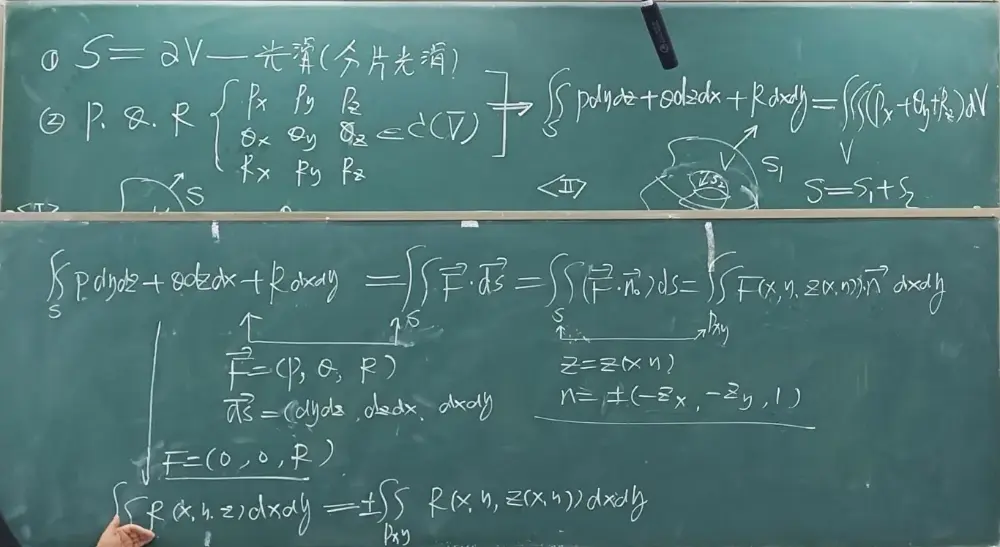 ① S = ∂V — 光滑(分片光滑)
② P. Q. R { Px Py Pz
Qx Qy Qz ∈ C'(V̄)
Rx Ry Rz
] ⇒ ∬_S Pdydz + Qdzdx + Rdxdy = ∭_V (Px + Qy + Rz) dV
<I> S
<II> V S₁ S₂
S = S₁ + S₂
∬_S Pdydz + Qdzdx + Rdxdy = ∬_S F⃗·ds⃗ = ∬_S (F⃗·n⃗₀) ds = ∬_Dxy F(x, y, z(x,y))·n⃗ dxdy
F⃗ = (P, Q, R)
ds⃗ = (dydz, dzdx, dxdy
z = z(x y)
n = ±(-Zx, -Zy, 1)
F = (0, 0, R)
∬ R(x, y, z) dxdy = ±∬_Dxy R(x, y, z(x, y)) dxdy